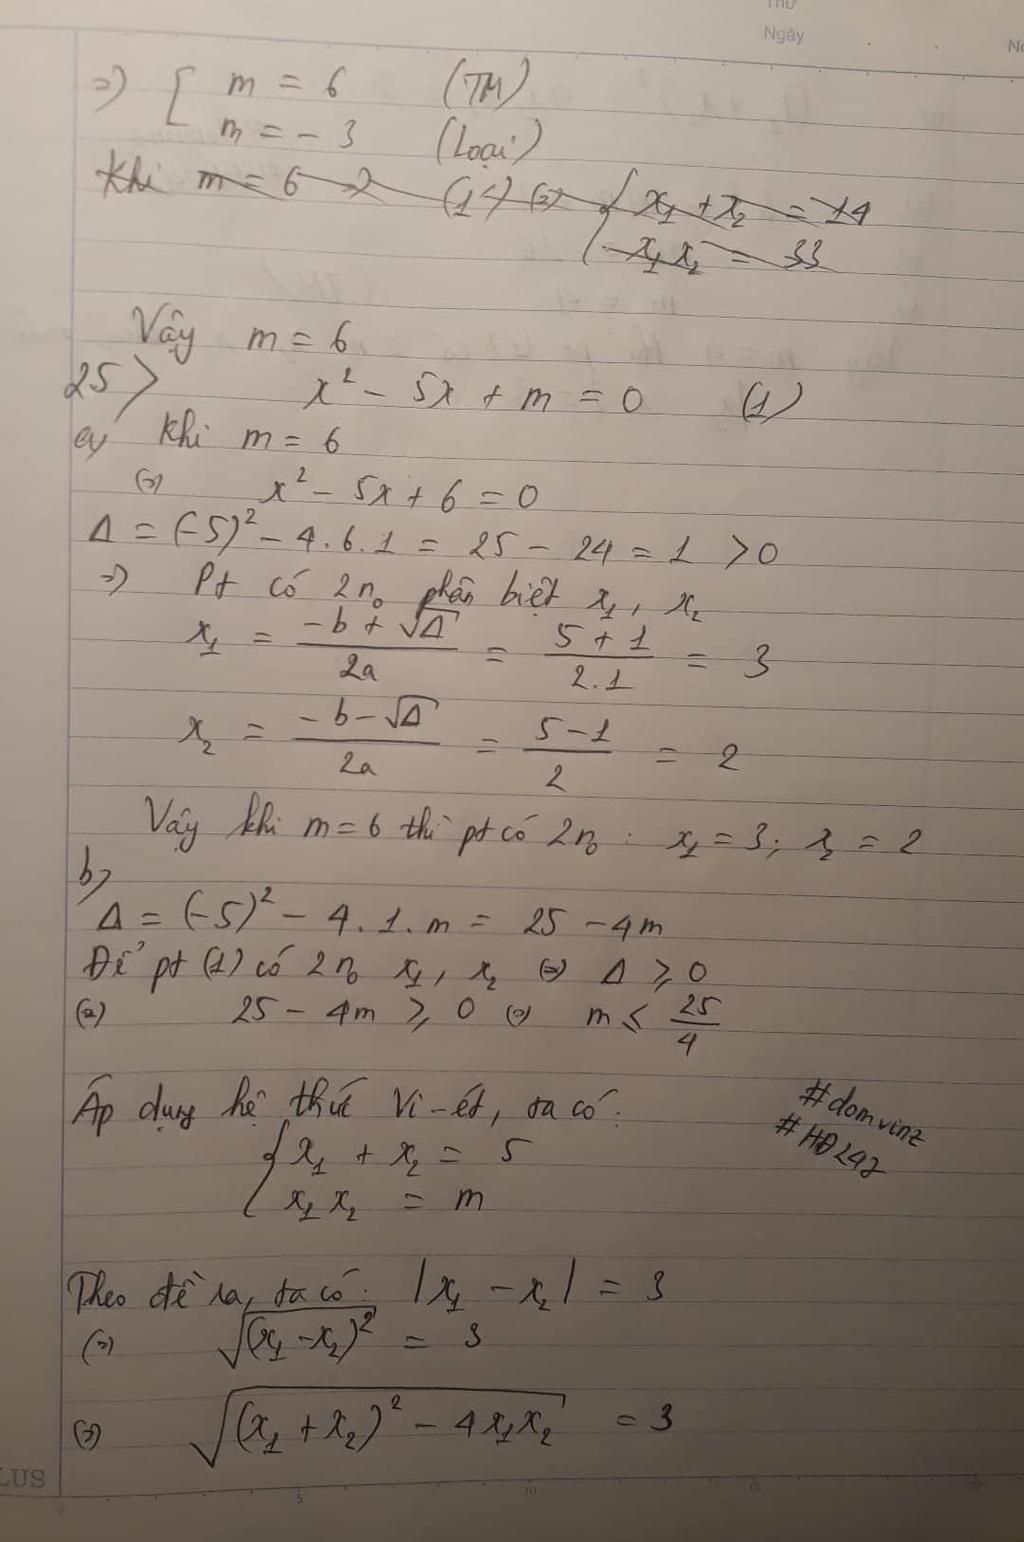 Thứ
Ngày
=> [ m = 6 (TM)
m = -3 (Loại)
Khi m = 6 => (1) <=> { x₁ + x₂ = 14
x₁ x₂ = 33
Vậy m = 6
25> x² - 5x + m = 0 (1)
a, Khi m = 6
<=> x² - 5x + 6 = 0
Δ = (-5)² - 4.6.1 = 25 - 24 = 1 > 0
=> Pt có 2n₀ phân biệt x₁, x₂
x₁ = (-b + √Δ)/2a = (5 + 1)/2.1 = 3
x₂ = (-b - √Δ)/2a = (5 - 1)/2 = 2
Vậy khi m = 6 thì pt có 2n₀ : x₁ = 3; x₂ = 2
b,
Δ = (-5)² - 4.1.m = 25 - 4m
Để pt (1) có 2n₀ x₁, x₂ <=> Δ ⩾ 0
<=> 25 - 4m ⩾ 0 <=> m ⩽ 25/4
Áp dụng hệ thức Vi-ét, ta có:
{ x₁ + x₂ = 5
x₁ x₂ = m
#domvinz
#HĐ247
Theo đề ra, ta có: |x₁ - x₂| = 3
<=> √(x₁ - x₂)² = 3
<=> √(x₁ + x₂)² - 4x₁x₂ = 3
LUS
5 10 15